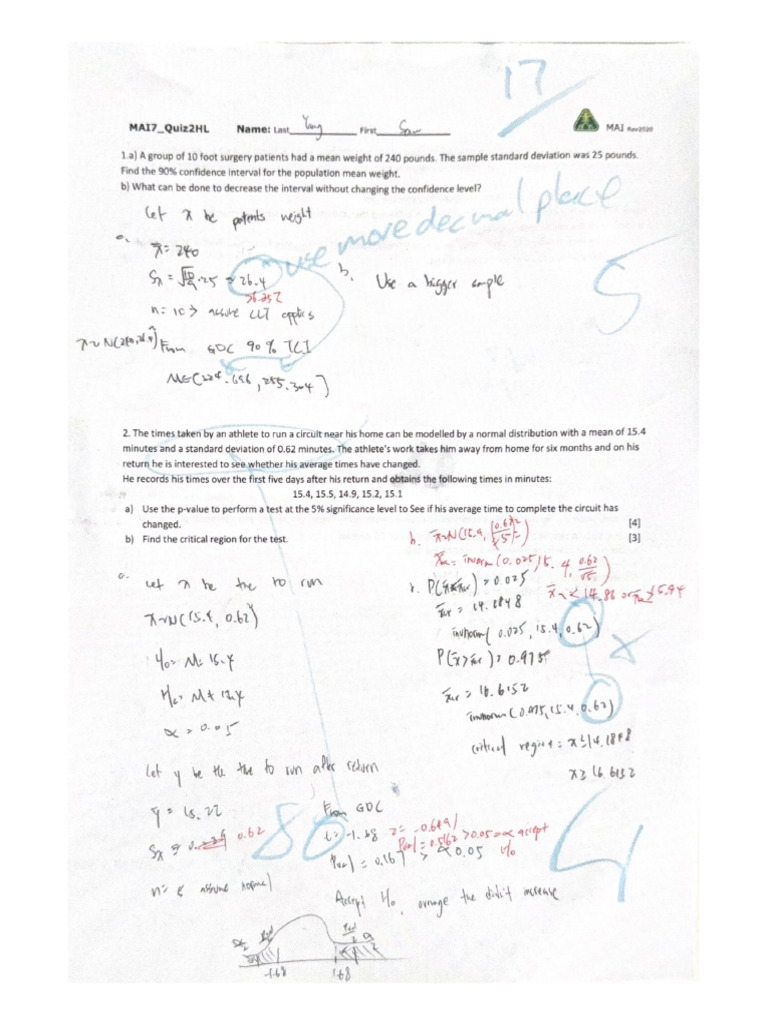 17
MAI7_Quiz2HL Name: Last Yang First Sam
MAI Rev2020
1.a) A group of 10 foot surgery patients had a mean weight of 240 pounds. The sample standard deviation was 25 pounds.
Find the 90% confidence interval for the population mean weight.
b) What can be done to decrease the interval without changing the confidence level?
use more decimal place
5
Let x be patents weight
a.
x̄ = 240
Sx = √(10/9) · 25 = 26.4
26.352
n = 10 > assume CLT applies
From GDC 90% TCI
b. Use a bigger sample
2. The times taken by an athlete to run a circuit near his home can be modelled by a normal distribution with a mean of 15.4
minutes and a standard deviation of 0.62 minutes. The athlete's work takes him away from home for six months and on his
return he is interested to see whether his average times have changed.
He records his times over the first five days after his return and obtains the following times in minutes:
15.4, 15.5, 14.9, 15.2, 15.1
a) Use the p-value to perform a test at the 5% significance level to See if his average time to complete the circuit has
changed. [4]
b) Find the critical region for the test. [3]
a. Let x be the to run
x~N(15.4, 0.62²)
H₀ = M = 15.4
α = 0.05
Let y be the to run after return
ȳ = 15.22
0.62
n = 5 assume normal
-1.68 1.68
80
From GDC
t = -1.68 z = -0.649
Pval = 0.5162 > 0.05 = α accept
H₀
Pval = 0.167 > α 0.05
Accept H₀, average the didn't increase
b.
x̄cr = invnorm(0.025, 15.4, 0.62/√5)
x̄cr = 14.1848
invnorm(0.025, 15.4, 0.62)
x̄cr = 16.6152
invnorm(0.975, 15.4, 0.62)
critical region = x ≤ 14.1848
x ≥ 16.6152
4